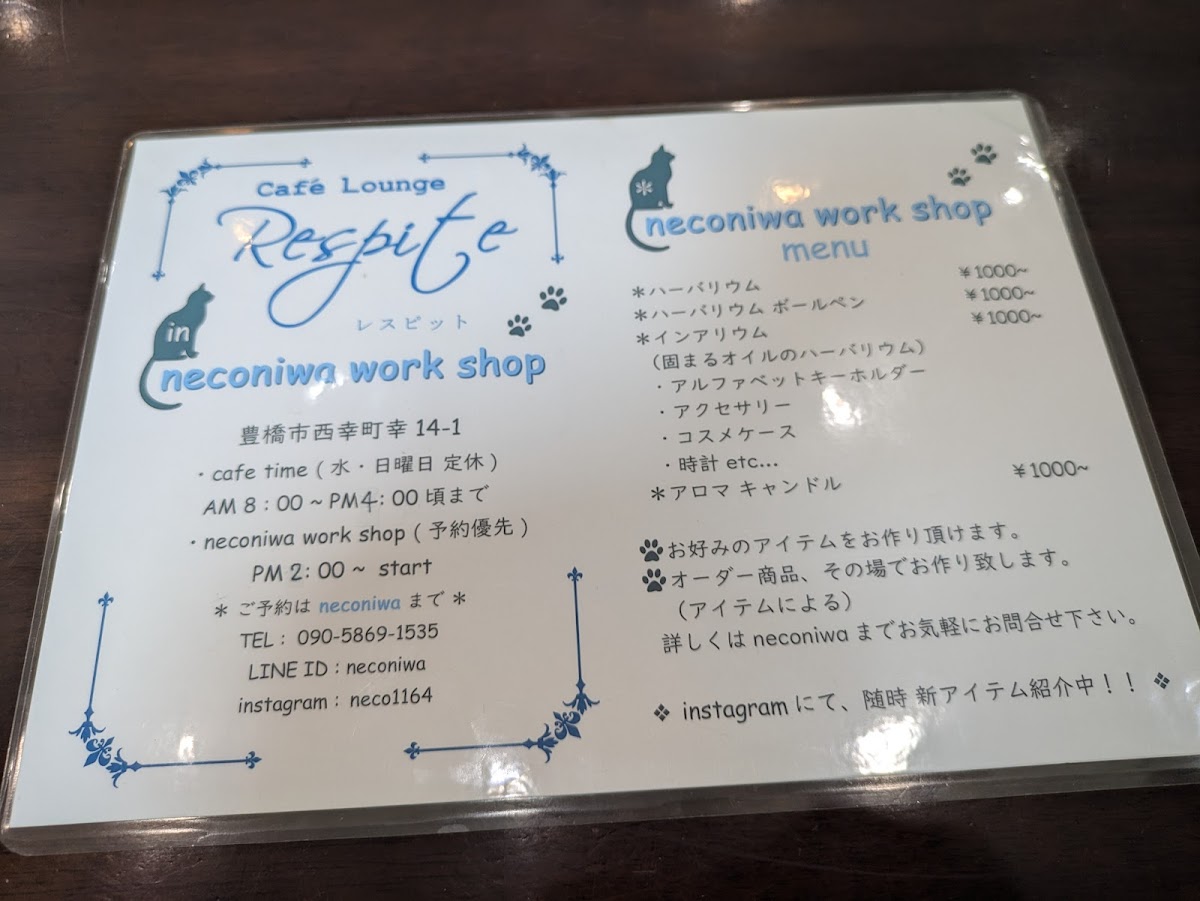 Café Lounge
Respite
レスピット
in
neconiwa work shop
豊橋市西幸町幸 14-1
・cafe time ( 水・日曜日 定休 )
AM 8 : 00 ~ PM 4 : 00 頃まで
・neconiwa work shop ( 予約優先 )
PM 2 : 00 ~ start
＊ ご予約は neconiwa まで ＊
TEL : 090-5869-1535
LINE ID : neconiwa
instagram : neco1164
＊
neconiwa work shop
menu
＊ハーバリウム ￥1000~
＊ハーバリウム ボールペン ￥1000~
＊インアリウム ￥1000~
（固まるオイルのハーバリウム）
・アルファベットキーホルダー
・アクセサリー
・コスメケース
・時計 etc...
＊アロマ キャンドル ￥1000~
お好みのアイテムをお作り頂けます。
オーダー商品、その場でお作り致します。
（アイテムによる）
詳しくは neconiwa までお気軽にお問合せ下さい。
❖ instagram にて、随時 新アイテム紹介中！！ ❖